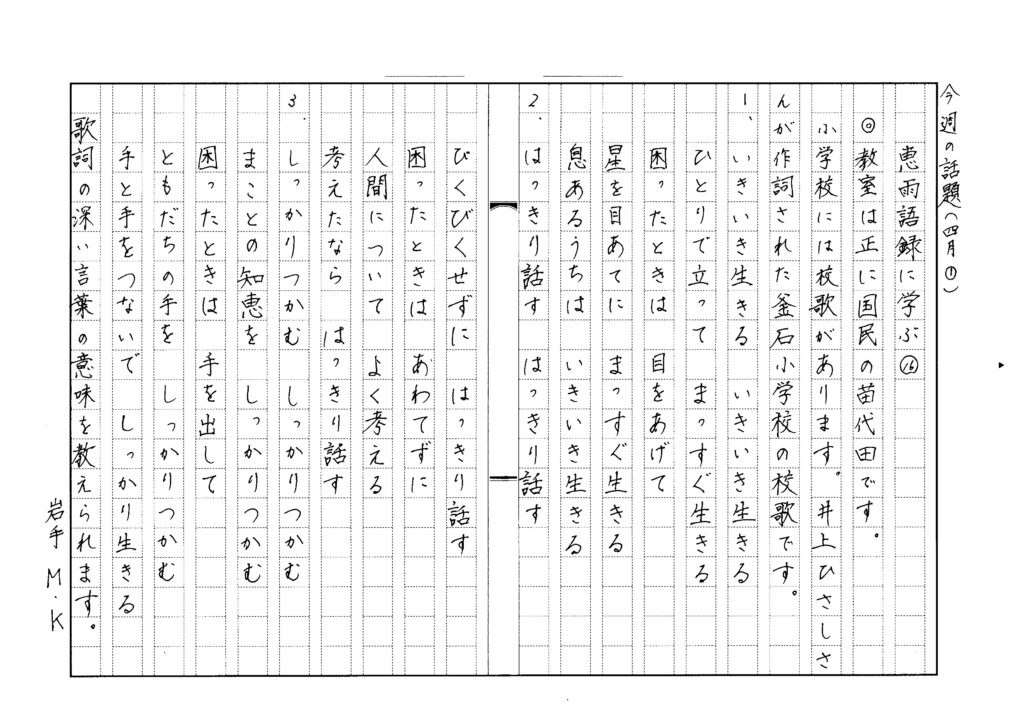 今週の話題(四月①)
恵雨語録に学ぶ⑯
◎教室は正に国民の苗代田です。
小学校には校歌があります。井上ひさしさ
んが作詞された釜石小学校の校歌です。
1、いきいき生きる いきいき生きる
ひとりで立って まっすぐ生きる
困ったときは 目をあげて
星を目あてに まっすぐ生きる
息あるうちは いきいき生きる
2、はっきり話す はっきり話す
びくびくせずに はっきり話す
困ったときは あわてずに
人間について よく考える
考えたなら はっきり話す
3.しっかりつかむ しっかりつかむ
まことの知恵を しっかりつかむ
困ったときは 手を出して
ともだちの手を しっかりつかむ
手と手をつないで しっかり生きる
歌詞の深い言葉の意味を教えられます。
岩手 M.K